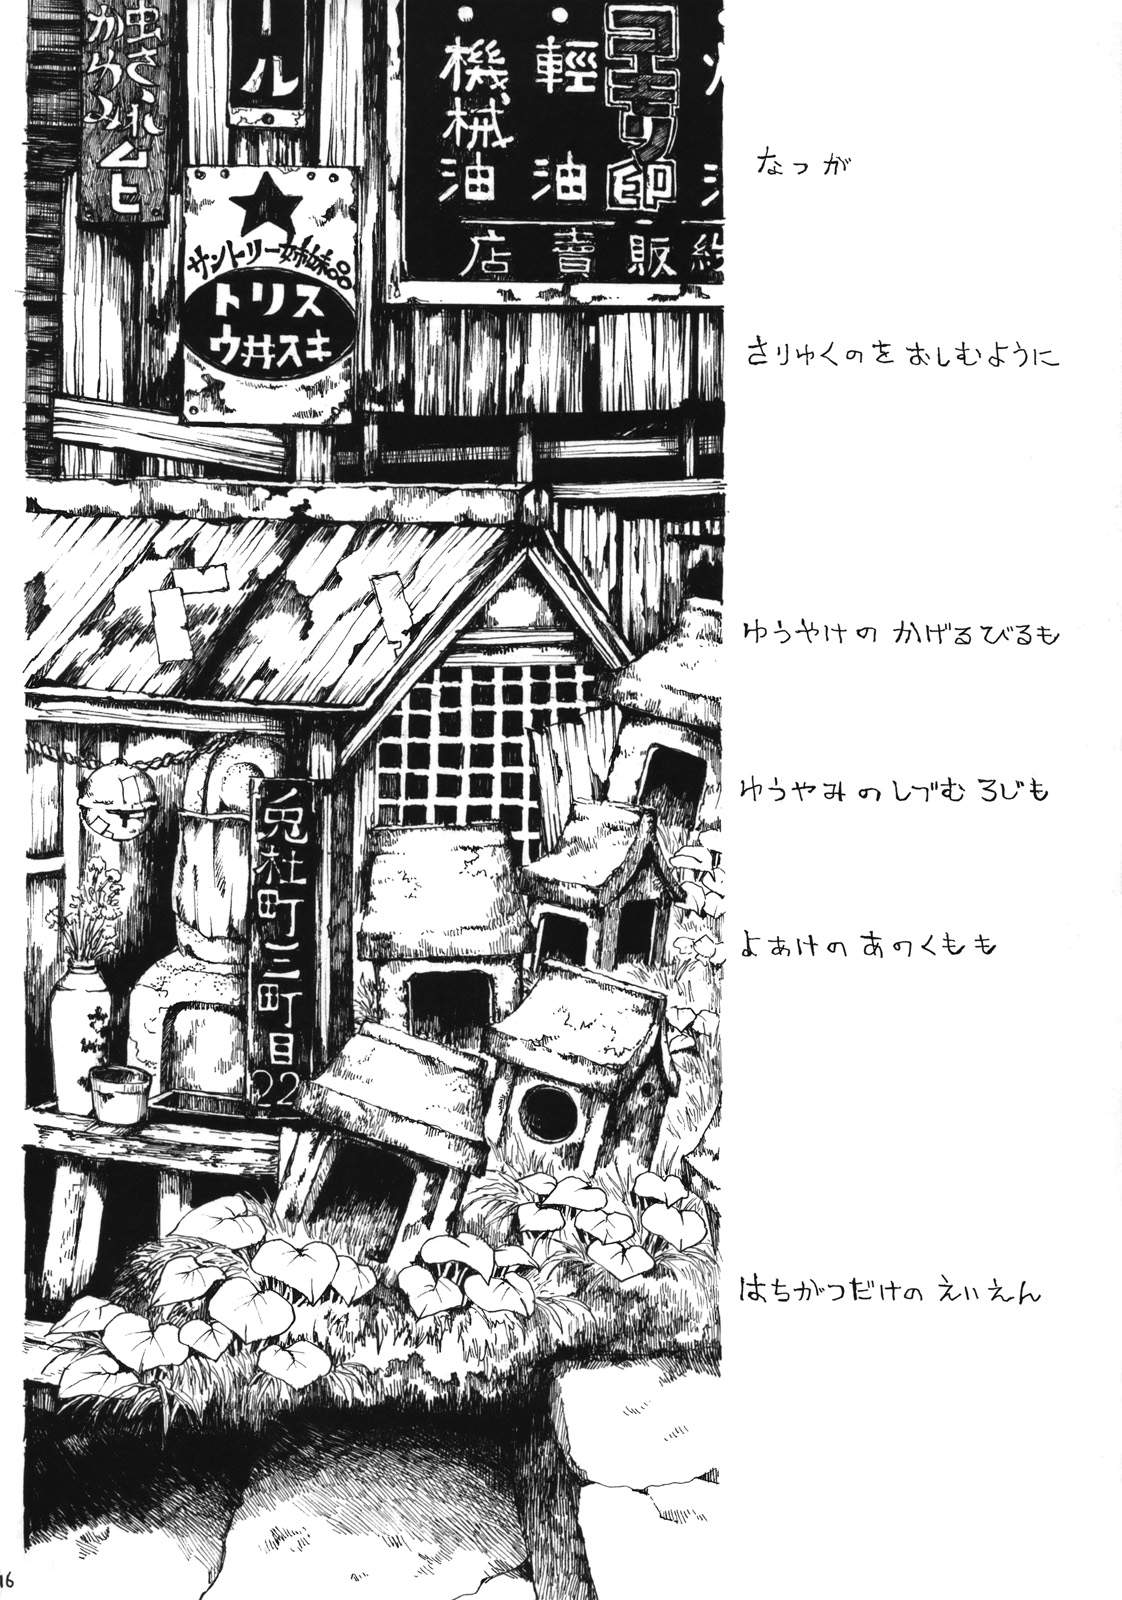 虫さされ
かゆみ
ムヒ
ール
サントリー姉妹品
トリス
ウ井スキ
機械油
輕油
コーモリ印
店賣販総
兎杜町三町目22
なつが
さりゆくのを おしむように
ゆうやけの かげるびるも
ゆうやみの しづむ ろじも
よあけの あの くもも
はちがつだけの えいえん
16